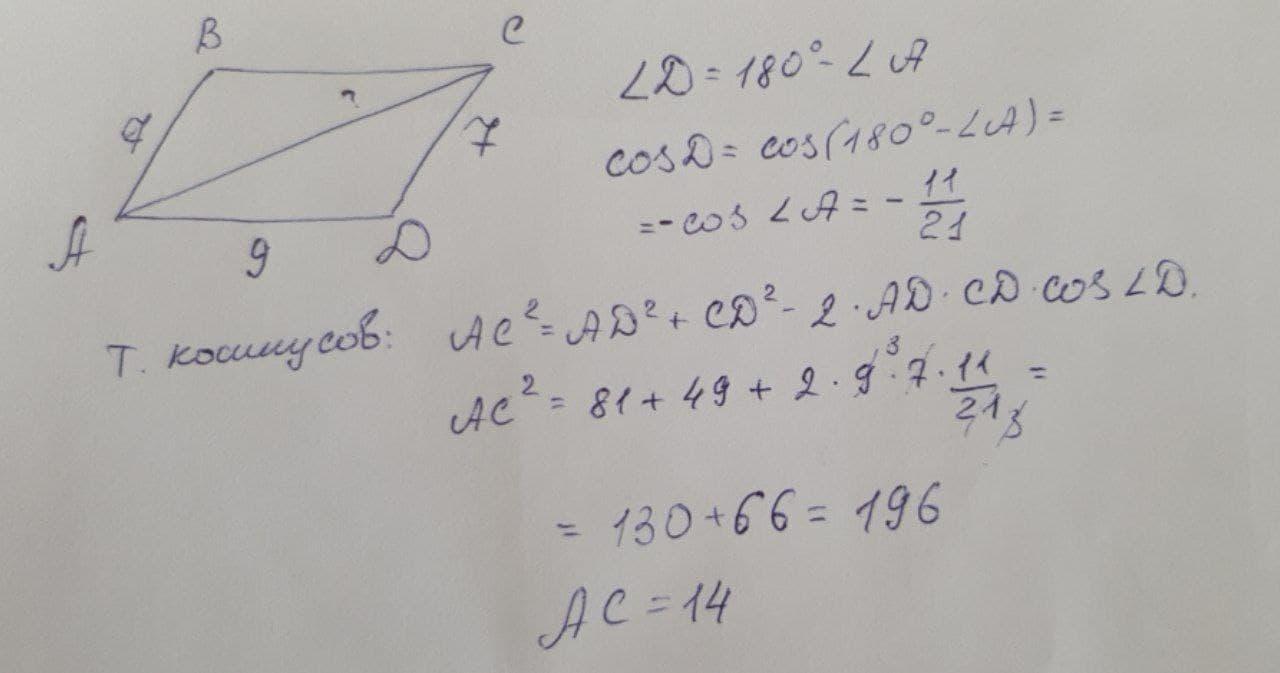 B
C
?
7
7
A
9
D
∠D = 180° - ∠A
cos D = cos(180° - ∠A) =
= - cos ∠A = - 11/21
Т. косинусов: AC² = AD² + CD² - 2 · AD · CD · cos ∠D.
AC² = 81 + 49 + 2 · 9 ³ · 7 · 11/21 3 =
= 130 + 66 = 196
AC = 14